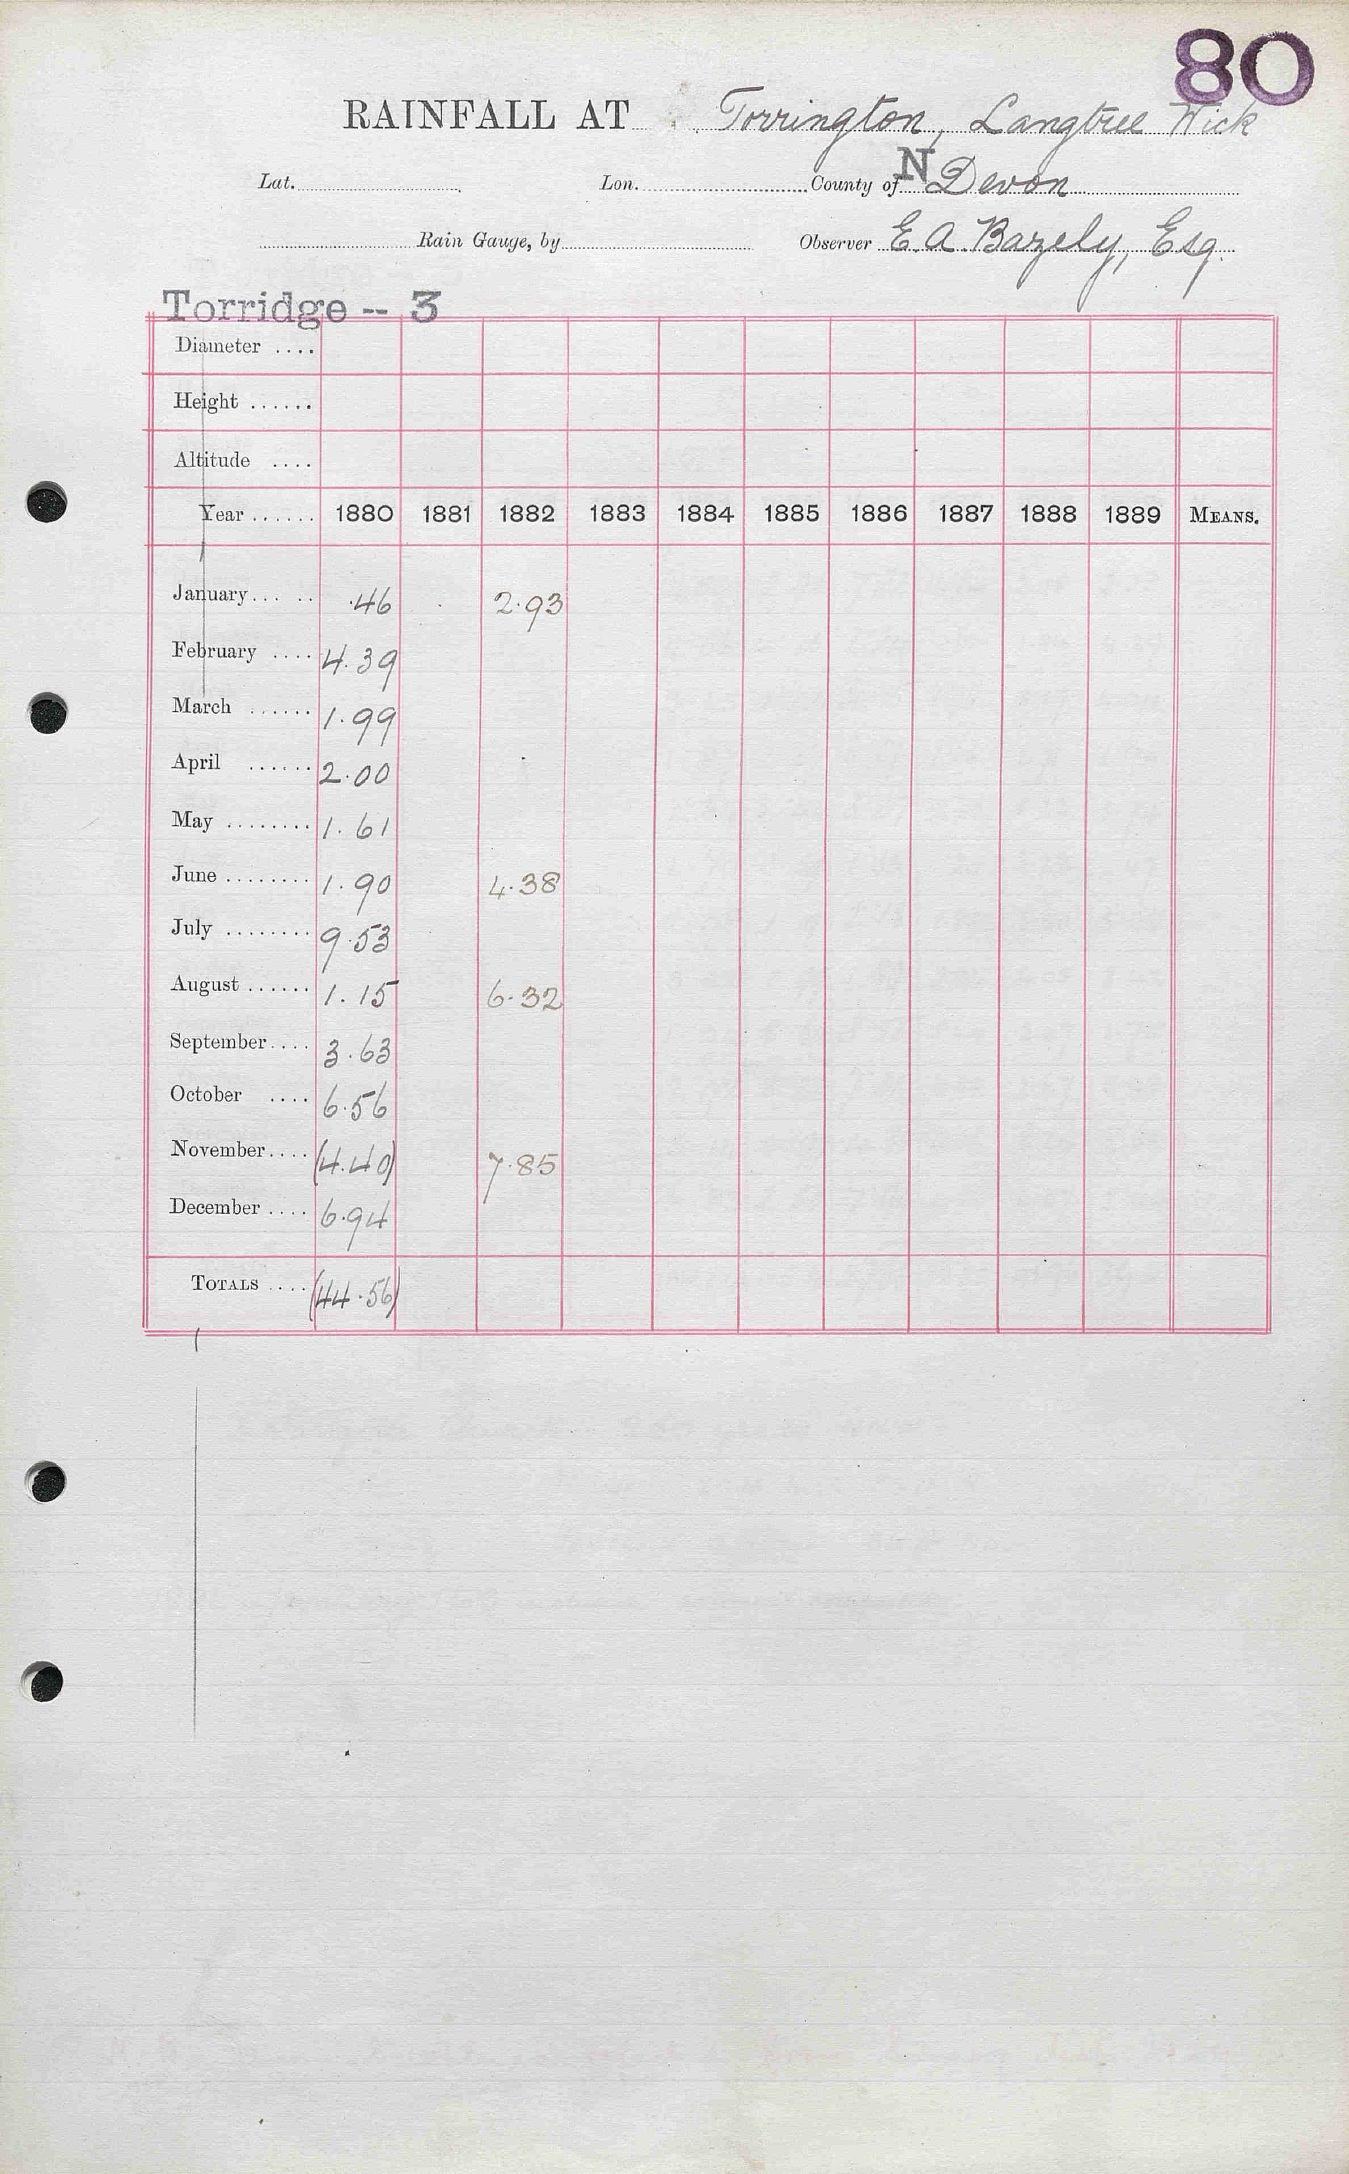 80
RAINFALL AT Torrington, Langtree Wick
Lat. Lon. County of N Devon
Rain Gauge, by Observer E. A. Bazely, Esq.
Torridge -- 3
Diameter ....
Height ......
Altitude ....
Year ...... 1880 1881 1882 1883 1884 1885 1886 1887 1888 1889 MEANS.
January... .. .46 2.93
February .... 4.39
March ...... 1.99
April ...... 2.00
May ........ 1.61
June ........ 1.90 4.38
July ........ 9.53
August ...... 1.15 6.32
September.... 3.63
October .... 6.56
November.... (4.40) 7.85
December .... 6.94
TOTALS .... (44.56)